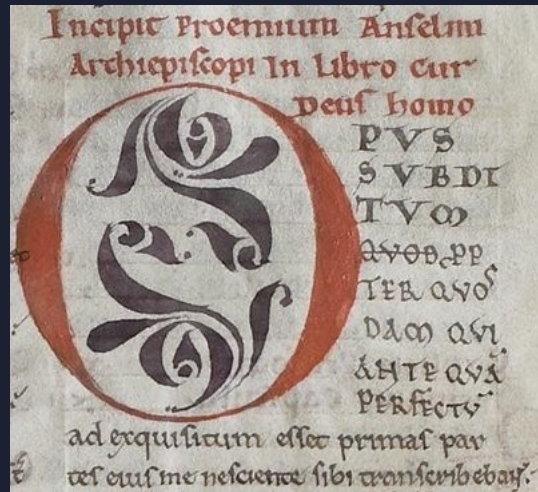 Incipit Proemium Anselmi
Archiepiscopi In Libro Cur
Deus homo
OPVS
SVBDI
TVM
QVOD PP
TER QVOS
DAM QVI
ANTE QVĀ
PERFECTV̄
ad exquisitum esset primas par
tes eius me nesciente sibi transcribebant.